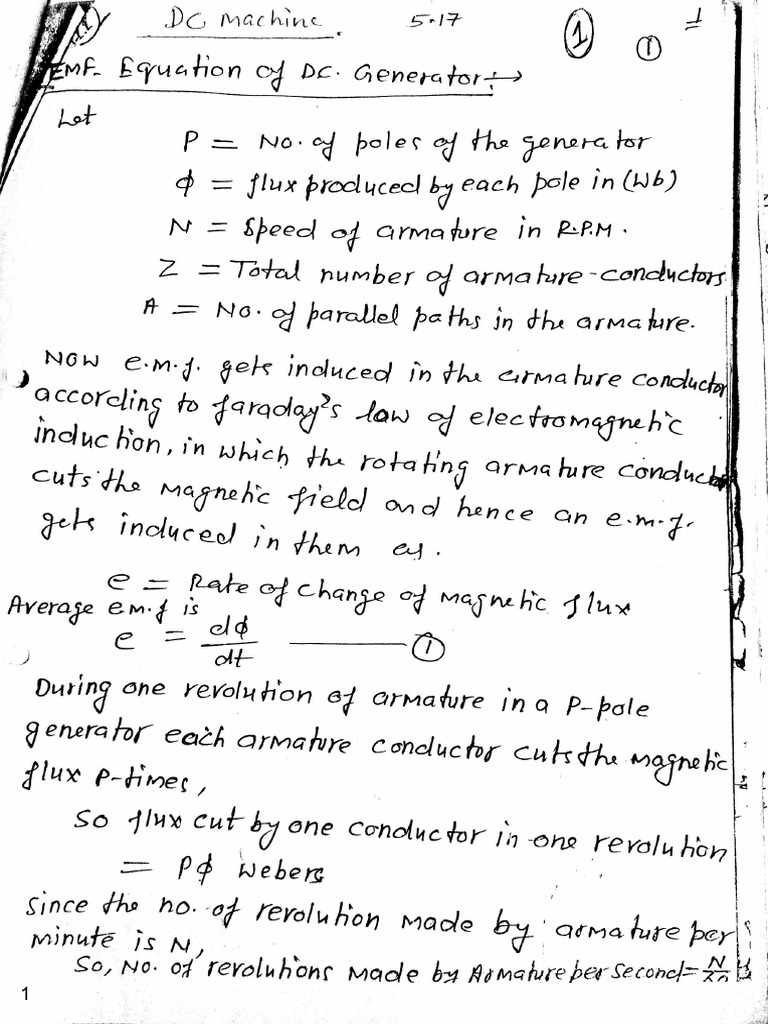 DC Machine. 5.17 1 1
EMF Equation of DC. Generator :→
Let
P = No. of poles of the generator
φ = flux produced by each pole in (Wb)
N = Speed of armature in R.P.M.
Z = Total number of armature-conductors
A = No. of parallel paths in the armature.
Now e.m.f. gets induced in the armature conductor
according to faraday's law of electromagnetic
induction, in which the rotating armature conductor
cuts the magnetic field and hence an e.m.f.
gets induced in them as.
e = Rate of change of magnetic flux
Average e.m.f is
e = dφ/dt ——— 1
During one revolution of armature in a P-pole
generator each armature conductor cuts the magnetic
flux P-times,
So flux cut by one conductor in one revolution
= Pφ webers
Since the no. of revolution made by armature per
minute is N,
So, No. of revolutions made by Armature per second = N/60
1